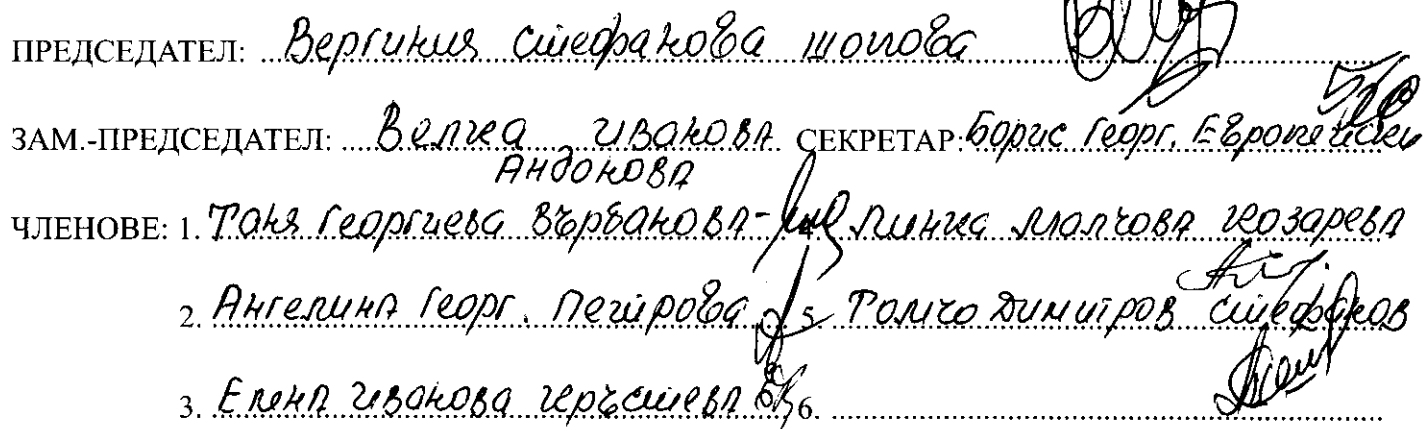 ПРЕДСЕДАТЕЛ: Вергиния Стефанова Шопова
ЗАМ.-ПРЕДСЕДАТЕЛ: Велка Иванова СЕКРЕТАР: Борис Георг. Европейски
Андонова
ЧЛЕНОВЕ: 1. Таня Георгиева Върбанова- Минка Малчова Козарева
2. Ангелина Георг. Петрова 5. Томчо Димитров Стефанов
3. Елена Иванова Кръстева 6.